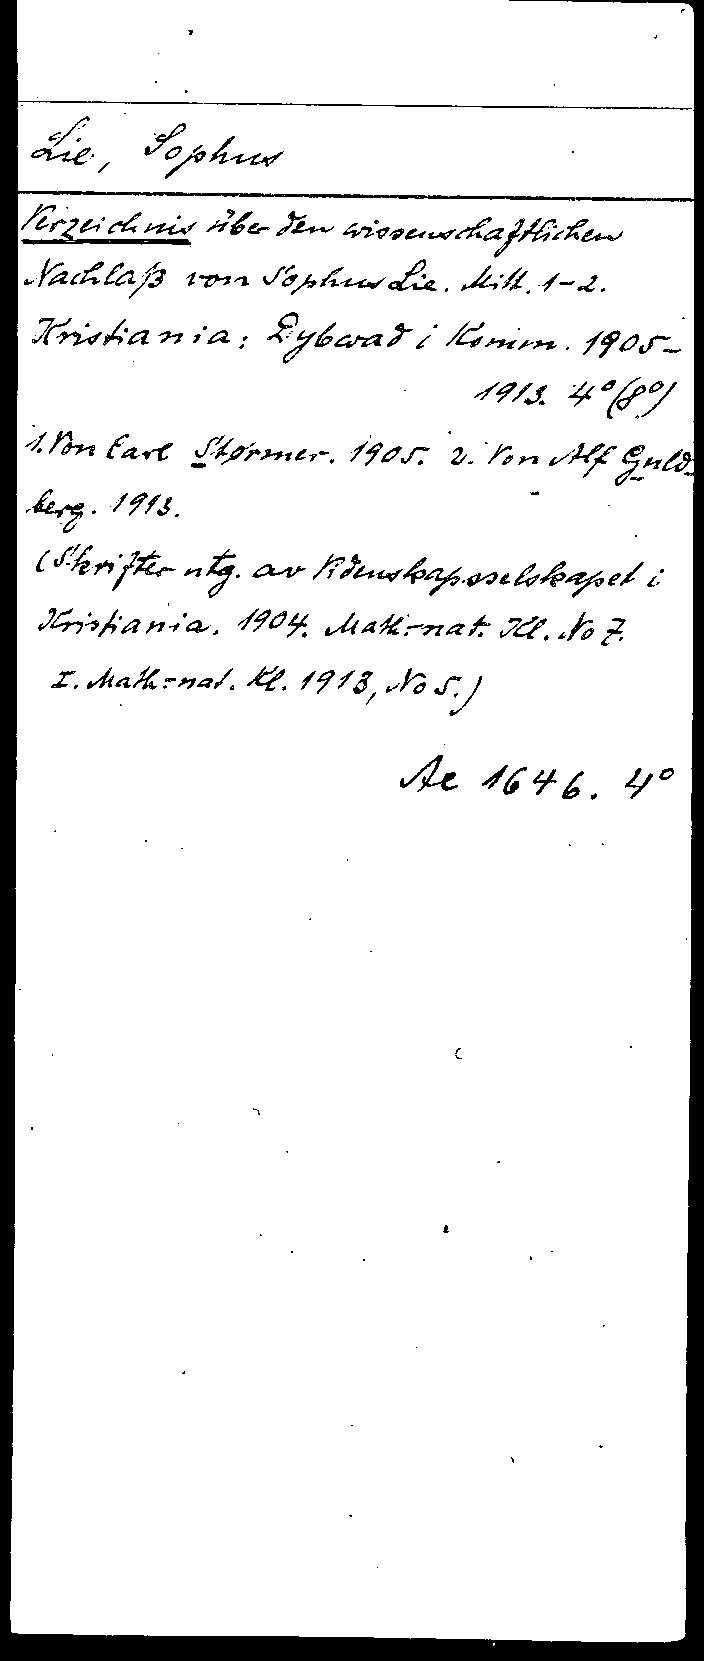 Lie, Sophus
Verzeichnis über den wissenschaftlichen
Nachlaß von Sophus Lie. Mitt. 1-2.
Kristiania: Dybwad i Komm. 1905-
1913. 4° (8°)
1. Von Carl Størmer. 1905. 2. Von Alf Guld-
berg. 1913.
(Skrifter utg. av Videnskapsselskapet i
Kristiania. 1904. Math.-nat. Kl. No 7.
I. Math.-nat. Kl. 1913, No 5.)
Ae 1646. 4°